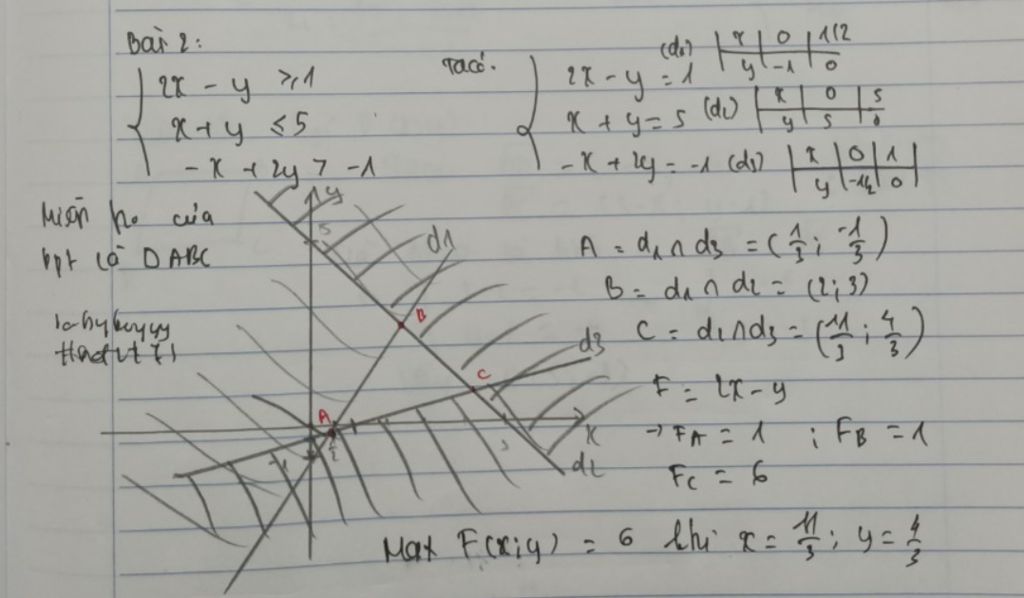 Bài 2:
2x - y ≥ 1
x + y ≤ 5
-x + 2y > -1
Ta có:
2x - y = 1 (d1) x 0 1/2
y -1 0
x + y = 5 (d2) x 0 5
y 5 0
-x + 2y = -1 (d3) x 0 1
y -1/2 0
Miền no của
bpt là ΔABC
y
5
d1
B
d3
C
A
x
d2
A = d1 ∩ d3 = (1/3 ; -1/3)
B = d1 ∩ d2 = (2; 3)
C = d2 ∩ d3 = (11/3 ; 4/3)
F = 2x - y
→ FA = 1 ; FB = 1
FC = 6
Max F(x;y) = 6 khi x = 11/3 ; y = 4/3